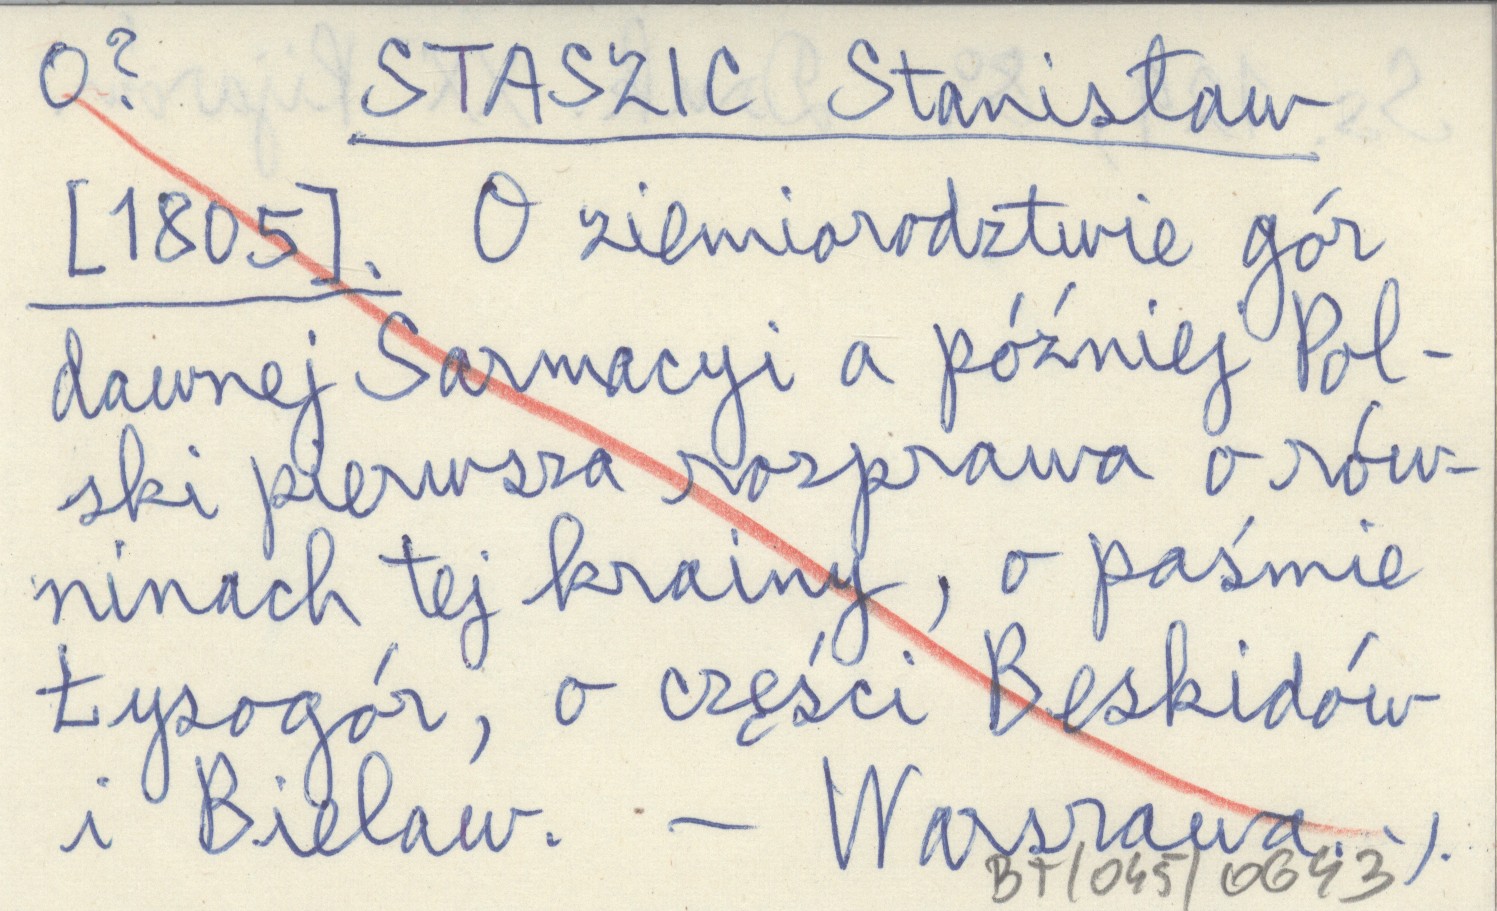 O? STASZIC Stanisław
[1805]. O ziemiorodztwie gór
dawnej Sarmacyi a później Pol-
ski pierwsza rozprawa o rów-
ninach tej krainy, o paśmie
Łysogór, o części Beskidów
i Bielaw. — Warszawa.
BT/045/0643